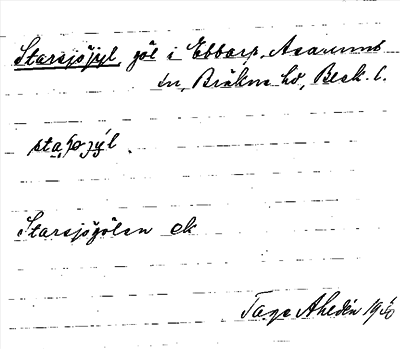 Starsjöjyl, göl i Ebbarp, Asarums
sn, Bräkne hd, Blek. l.
Starsjögölen ek
Tage Ahldén 19